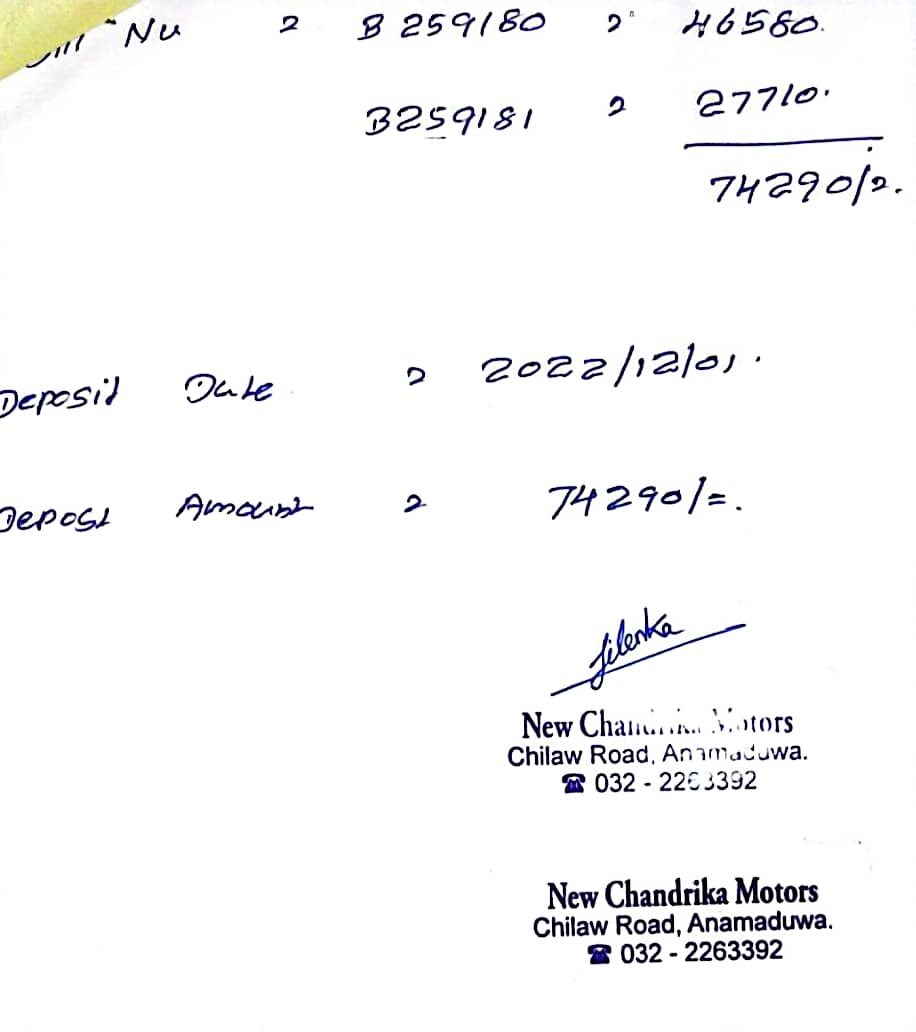 Nu = B 259180 = 46580.
B259181 = 27710.
74290/=.
Deposit Date = 2022/12/01.
Depost Amount = 74290/=.
New Motors
Chilaw Road, Anamaduwa.
032 - 2263392
New Chandrika Motors
Chilaw Road, Anamaduwa.
032 - 2263392